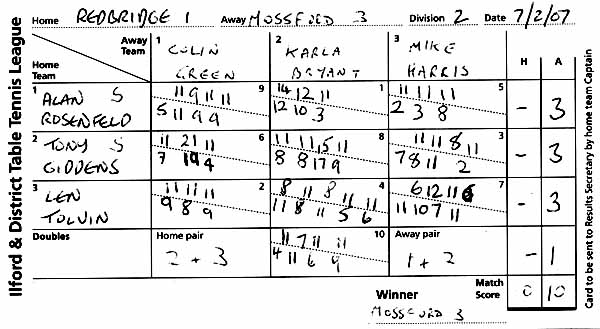 Ilford & District Table Tennis League
Home REDBRIDGE 1 Away MOSSFORD 3 Division 2 Date 7/2/07
Away Team
Home Team
1 COLIN GREEN
2 KARLA BRYANT
3 MIKE HARRIS
H A
1 ALAN S ROSENFELD
9 11 9 11 11
5 11 9 9
1 14 12 11
12 10 3
5 11 11 11 11
2 3 8
- 3
2 TONY S GIDDENS
6 11 21 11
7 19 4
8 11 11 15 11
8 8 17 9
3 11 11 8 11
7 8 11 2
- 3
3 LEN TOLVIN
2 11 11 11
9 8 9
4 8 11 8 11 11
11 8 11 5 6
7 6 12 11 6
11 10 7 11
- 3
Doubles
Home pair
2 + 3
10 11 7 11 11
4 11 6 9
Away pair
1 + 2
- 1
Match Score
0 10
Winner
MOSSFORD 3
Card to be sent to Results Secretary by home team Captain